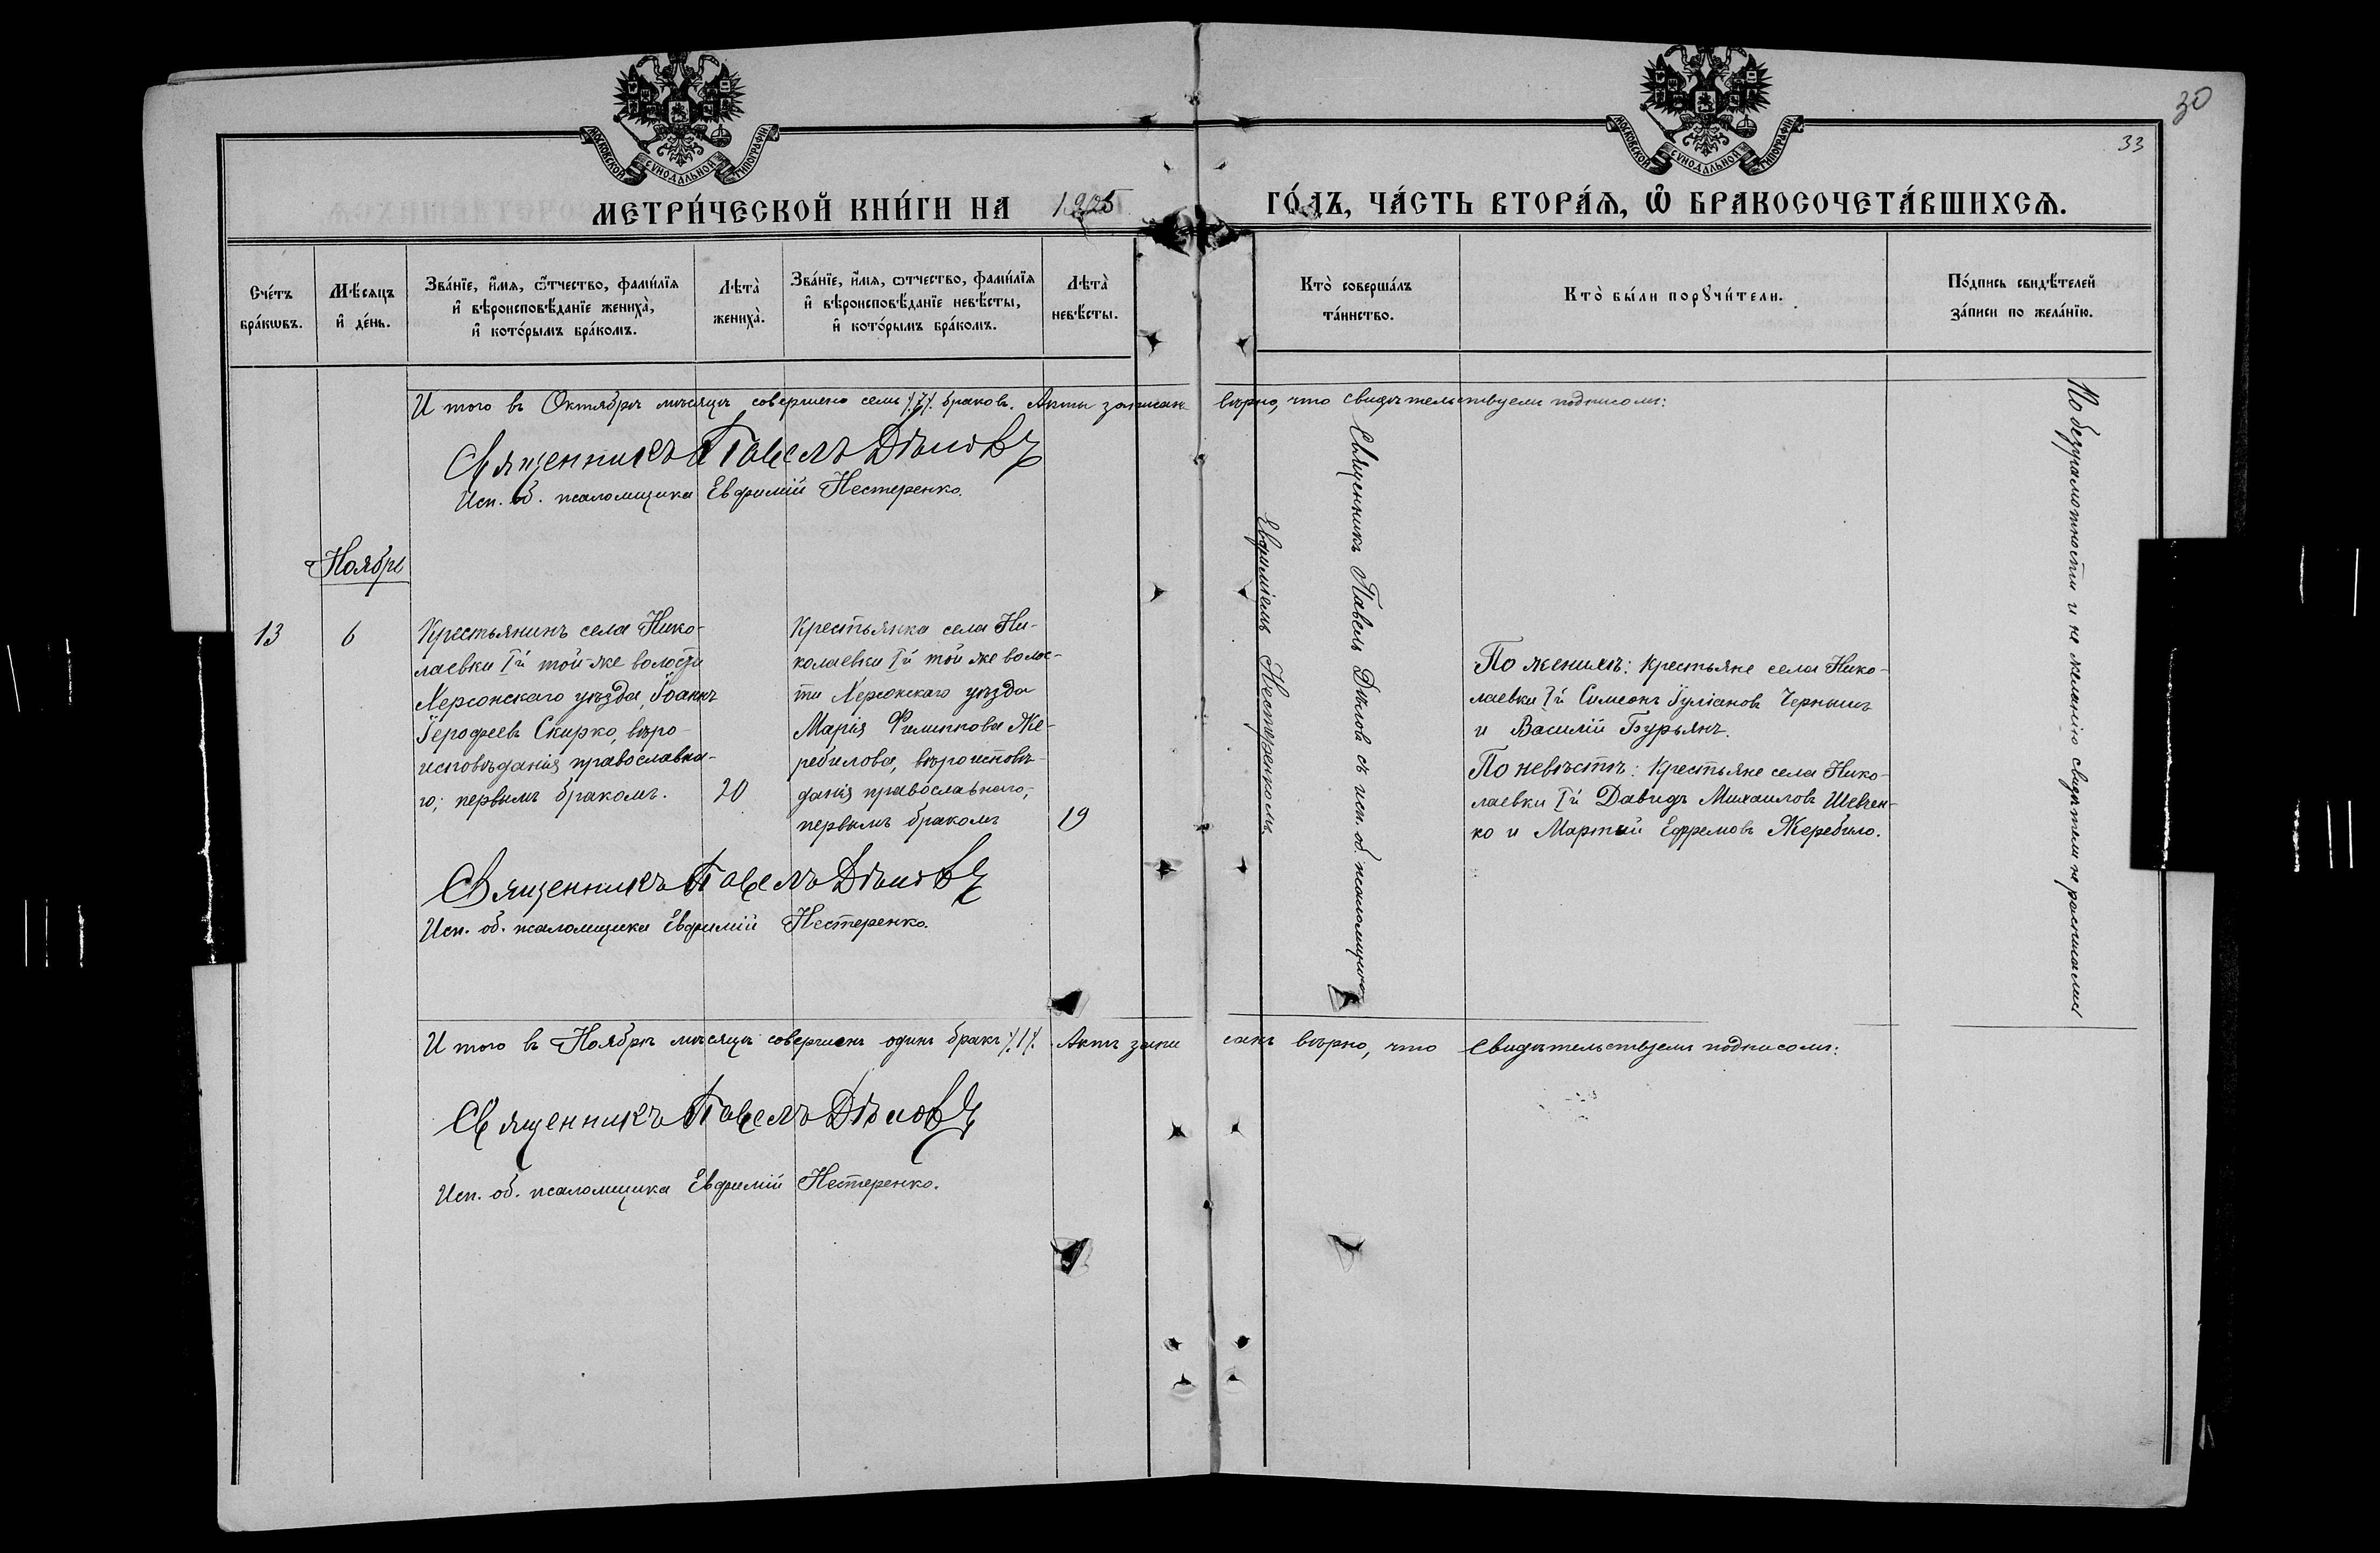 30
33
МОСКОВСКОЙ СѴНОДАЛЬНОЙ ТИПОГРАФІИ
МОСКОВСКОЙ СѴНОДАЛЬНОЙ ТИПОГРАФІИ
МЕТРИ́ЧЕСКОЙ КНИ́ГИ НА 1905 ГО́ДЪ, ЧА́СТЬ ВТОРА́Ѧ, Ѡ҆ БРАКОСОЧЕТА́ВШИХСѦ.
Сче́тъ
бра́кѡвъ.
Мѣ́сяцъ
и҆ де́нь.
Зва́нїе, и҆́мя, ѻ҆́тчество, фами́лїя
и҆ вѣроисповѣ́данїе жениха̀,
и҆ кото́рымъ бра́комъ.
Лѣта̀
жениха̀.
Зва́нїе, и҆́мя, ѻтчество, фами́лїя
и҆ вѣроисповѣ́данїе невѣ́сты,
и҆ кото́рымъ бра́комъ.
Лѣта̀
невѣ́сты.
Кто̀ соверша́лъ
та́инство.
Кто̀ бы́ли порꙋчи́тели.
По́дпись свидѣ́телей
за́писи по жела́нїю.
Итого въ Октябрѣ мѣсяцѣ совершено семь ∕.7∕. браковъ. Акты записан вѣрно, что свидѣтельствуемъ подписомъ:
Священникъ Павелъ Дѣловъ
Исп. об. псаломщика Евфимій Нестеренко.
Ноябрь
13
6
Крестьянинъ села Нико-
лаевки Iй той-же волости
Херсонскаго уѣзда, Іоаннъ
Іерофеевъ Скирко, вѣро-
исповѣданія православна-
го; первымъ бракомъ.
20
Крестьянка села Ни-
колаевки Iй той же волос-
ти Херсонскаго уѣзда
Марія Филиппова Же-
ребилова, вѣроисповѣ-
данія православнаго,
первымъ бракомъ
19
Священникъ Павелъ Дѣловъ съ исп. об. псаломщика
Евфиміемъ Нестеренкомъ.
По женихѣ: Крестьяне села Нико-
лаевки Iй Симеонъ Іуліановъ Чернышъ
и Василій Бурьянъ.
По невѣстѣ: Крестьяне села Нико-
лаевки Iй Давидъ Михаиловъ Шевчен-
ко и Мартий Ефремовъ Жеребило.
По безграмотности и не желанію свидѣтели не росписались
Священникъ Павелъ Дѣловъ
Исп. об. псаломщика Евфимій Нестеренко.
Итого въ Ноябрѣ мѣсяцѣ совершенъ одинъ бракъ ∕.1∕. Актъ записанъ вѣрно, что свидѣтельствуемъ подписомъ:
Священникъ Павелъ Дѣловъ
Исп. об. псаломщика Евфимій Нестеренко.